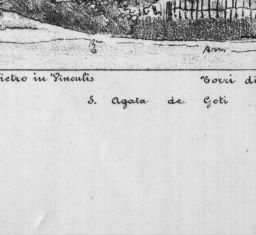 ietro in Vinculis Torri di
S. Agata de Goti